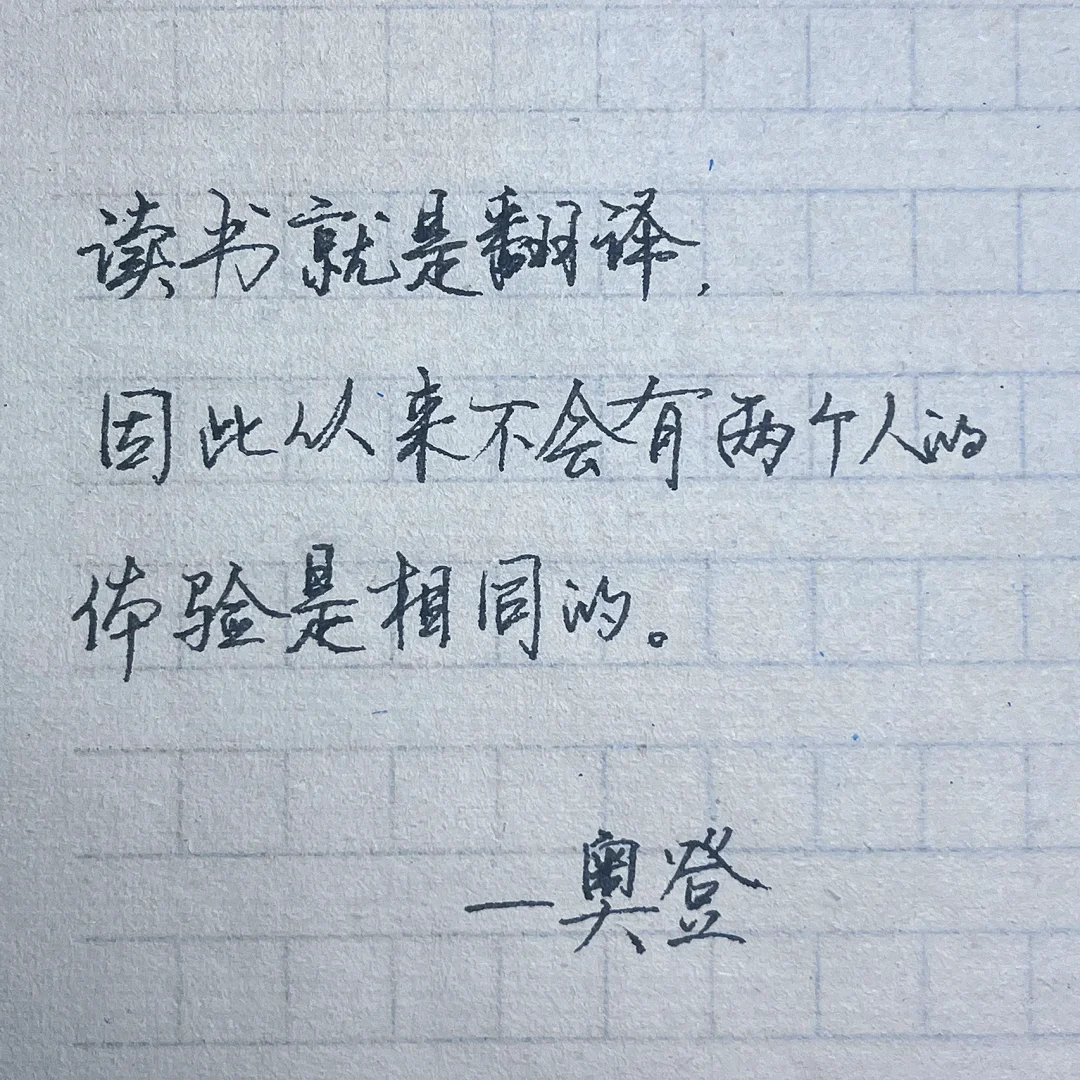 读书就是翻译,
因此从来不会有两个人的
体验是相同的。
—奥登